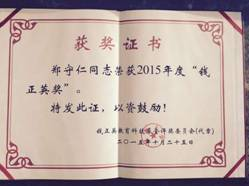 获奖证书
郑守仁同志荣获2015年度“钱
正英奖”。
特发此证，以资鼓励！
钱正英教育科技基金评奖委员会(代章)
二〇一五年十月二十五日